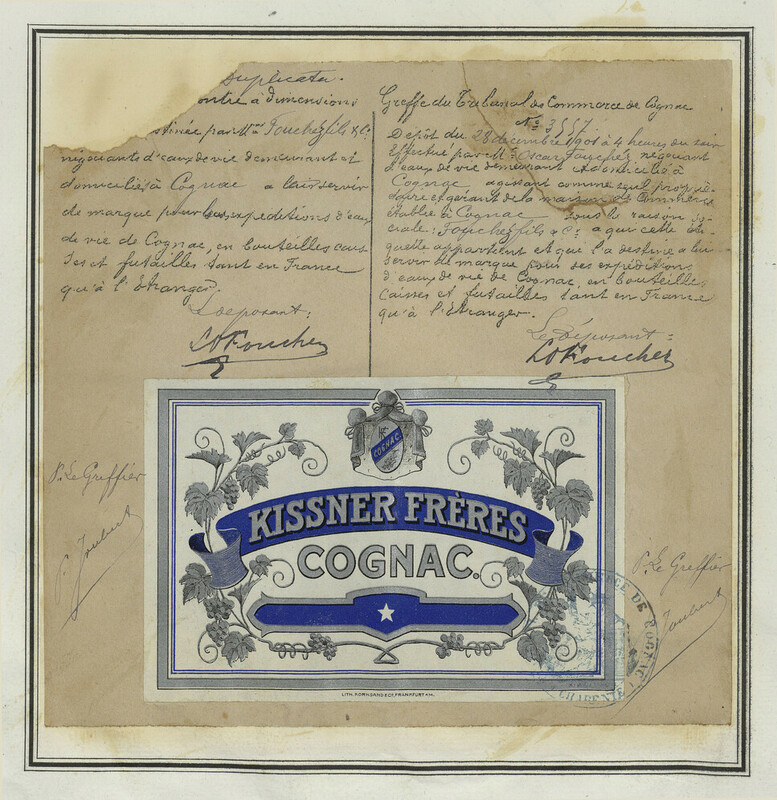 Duplicata.
contre à dimensions
stinée par Mrs Foucher fils & Cie
négociants d'eaux de vie demeurant et
domiciliés à Cognac a leur servir
de marque pour les expéditions d'eaux
de vie de Cognac, en bouteilles cais
ses et futailles tant en France
qu'à l'Etranger.
Le Déposant:
Foucher
Greffe du Tribunal de Commerce de Cognac
No 3557
Dépôt du 28 décembre 1901 à 4 heures du soir
Effectué par Mr Oscar Foucher négociant
d'eaux de vie demeurant et domicilié à
Cognac agissant comme seul proprié-
taire et gérant de la maison de Commerce
établie à Cognac sous la raison so-
ciale: Foucher fils & Cie a qui cette éti-
quette appartient et qui l'a destinée a lui
servir de marque pour ses expéditions
d'eaux de vie de Cognac, en bouteilles
caisses et futailles tant en France
qu'à l'Etranger.
Le Déposant:
Foucher
P. Le Greffier
P. Joubert
COGNAC
KISSNER FRÈRES
COGNAC.
P. Le Greffier
Joubert
DE COGNAC
CHARENTE
LITH. DORNSAND & CO, FRANKFURT A/M.